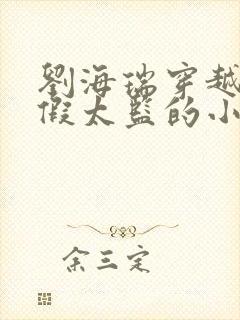 劉海瑞穿越
假太監的小
余三定